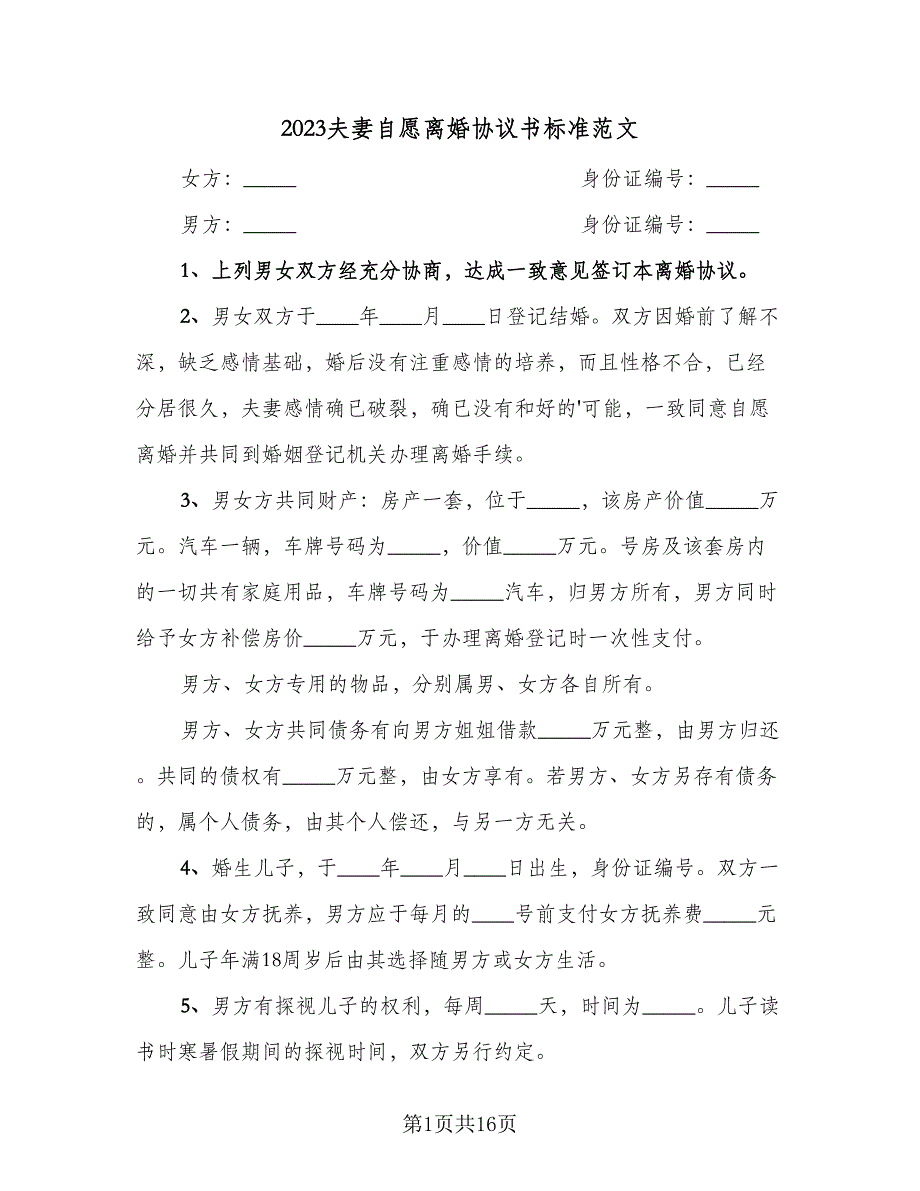 2023夫妻自愿离婚协议书标准范文
女方：_____ 身份证编号：_____
男方：_____ 身份证编号：_____
1、上列男女双方经充分协商，达成一致意见签订本离婚协议。
2、男女双方于____年____月____日登记结婚。双方因婚前了解不
深，缺乏感情基础，婚后没有注重感情的培养，而且性格不合，已经
分居很久，夫妻感情确已破裂，确已没有和好的'可能，一致同意自愿
离婚并共同到婚姻登记机关办理离婚手续。
3、男女方共同财产：房产一套，位于_____，该房产价值_____万
元。汽车一辆，车牌号码为_____，价值_____万元。号房及该套房内
的一切共有家庭用品，车牌号码为_____汽车，归男方所有，男方同时
给予女方补偿房价_____万元，于办理离婚登记时一次性支付。
男方、女方专用的物品，分别属男、女方各自所有。
男方、女方共同债务有向男方姐姐借款_____万元整，由男方归还
。共同的债权有_____万元整，由女方享有。若男方、女方另存有债务
的，属个人债务，由其个人偿还，与另一方无关。
4、婚生儿子，于____年____月____日出生，身份证编号。双方一
致同意由女方抚养，男方应于每月的____号前支付女方抚养费_____元
整。儿子年满18周岁后由其选择随男方或女方生活。
5、男方有探视儿子的权利，每周_____天，时间为_____。儿子读
书时寒暑假期间的探视时间，双方另行约定。
第1页共16页